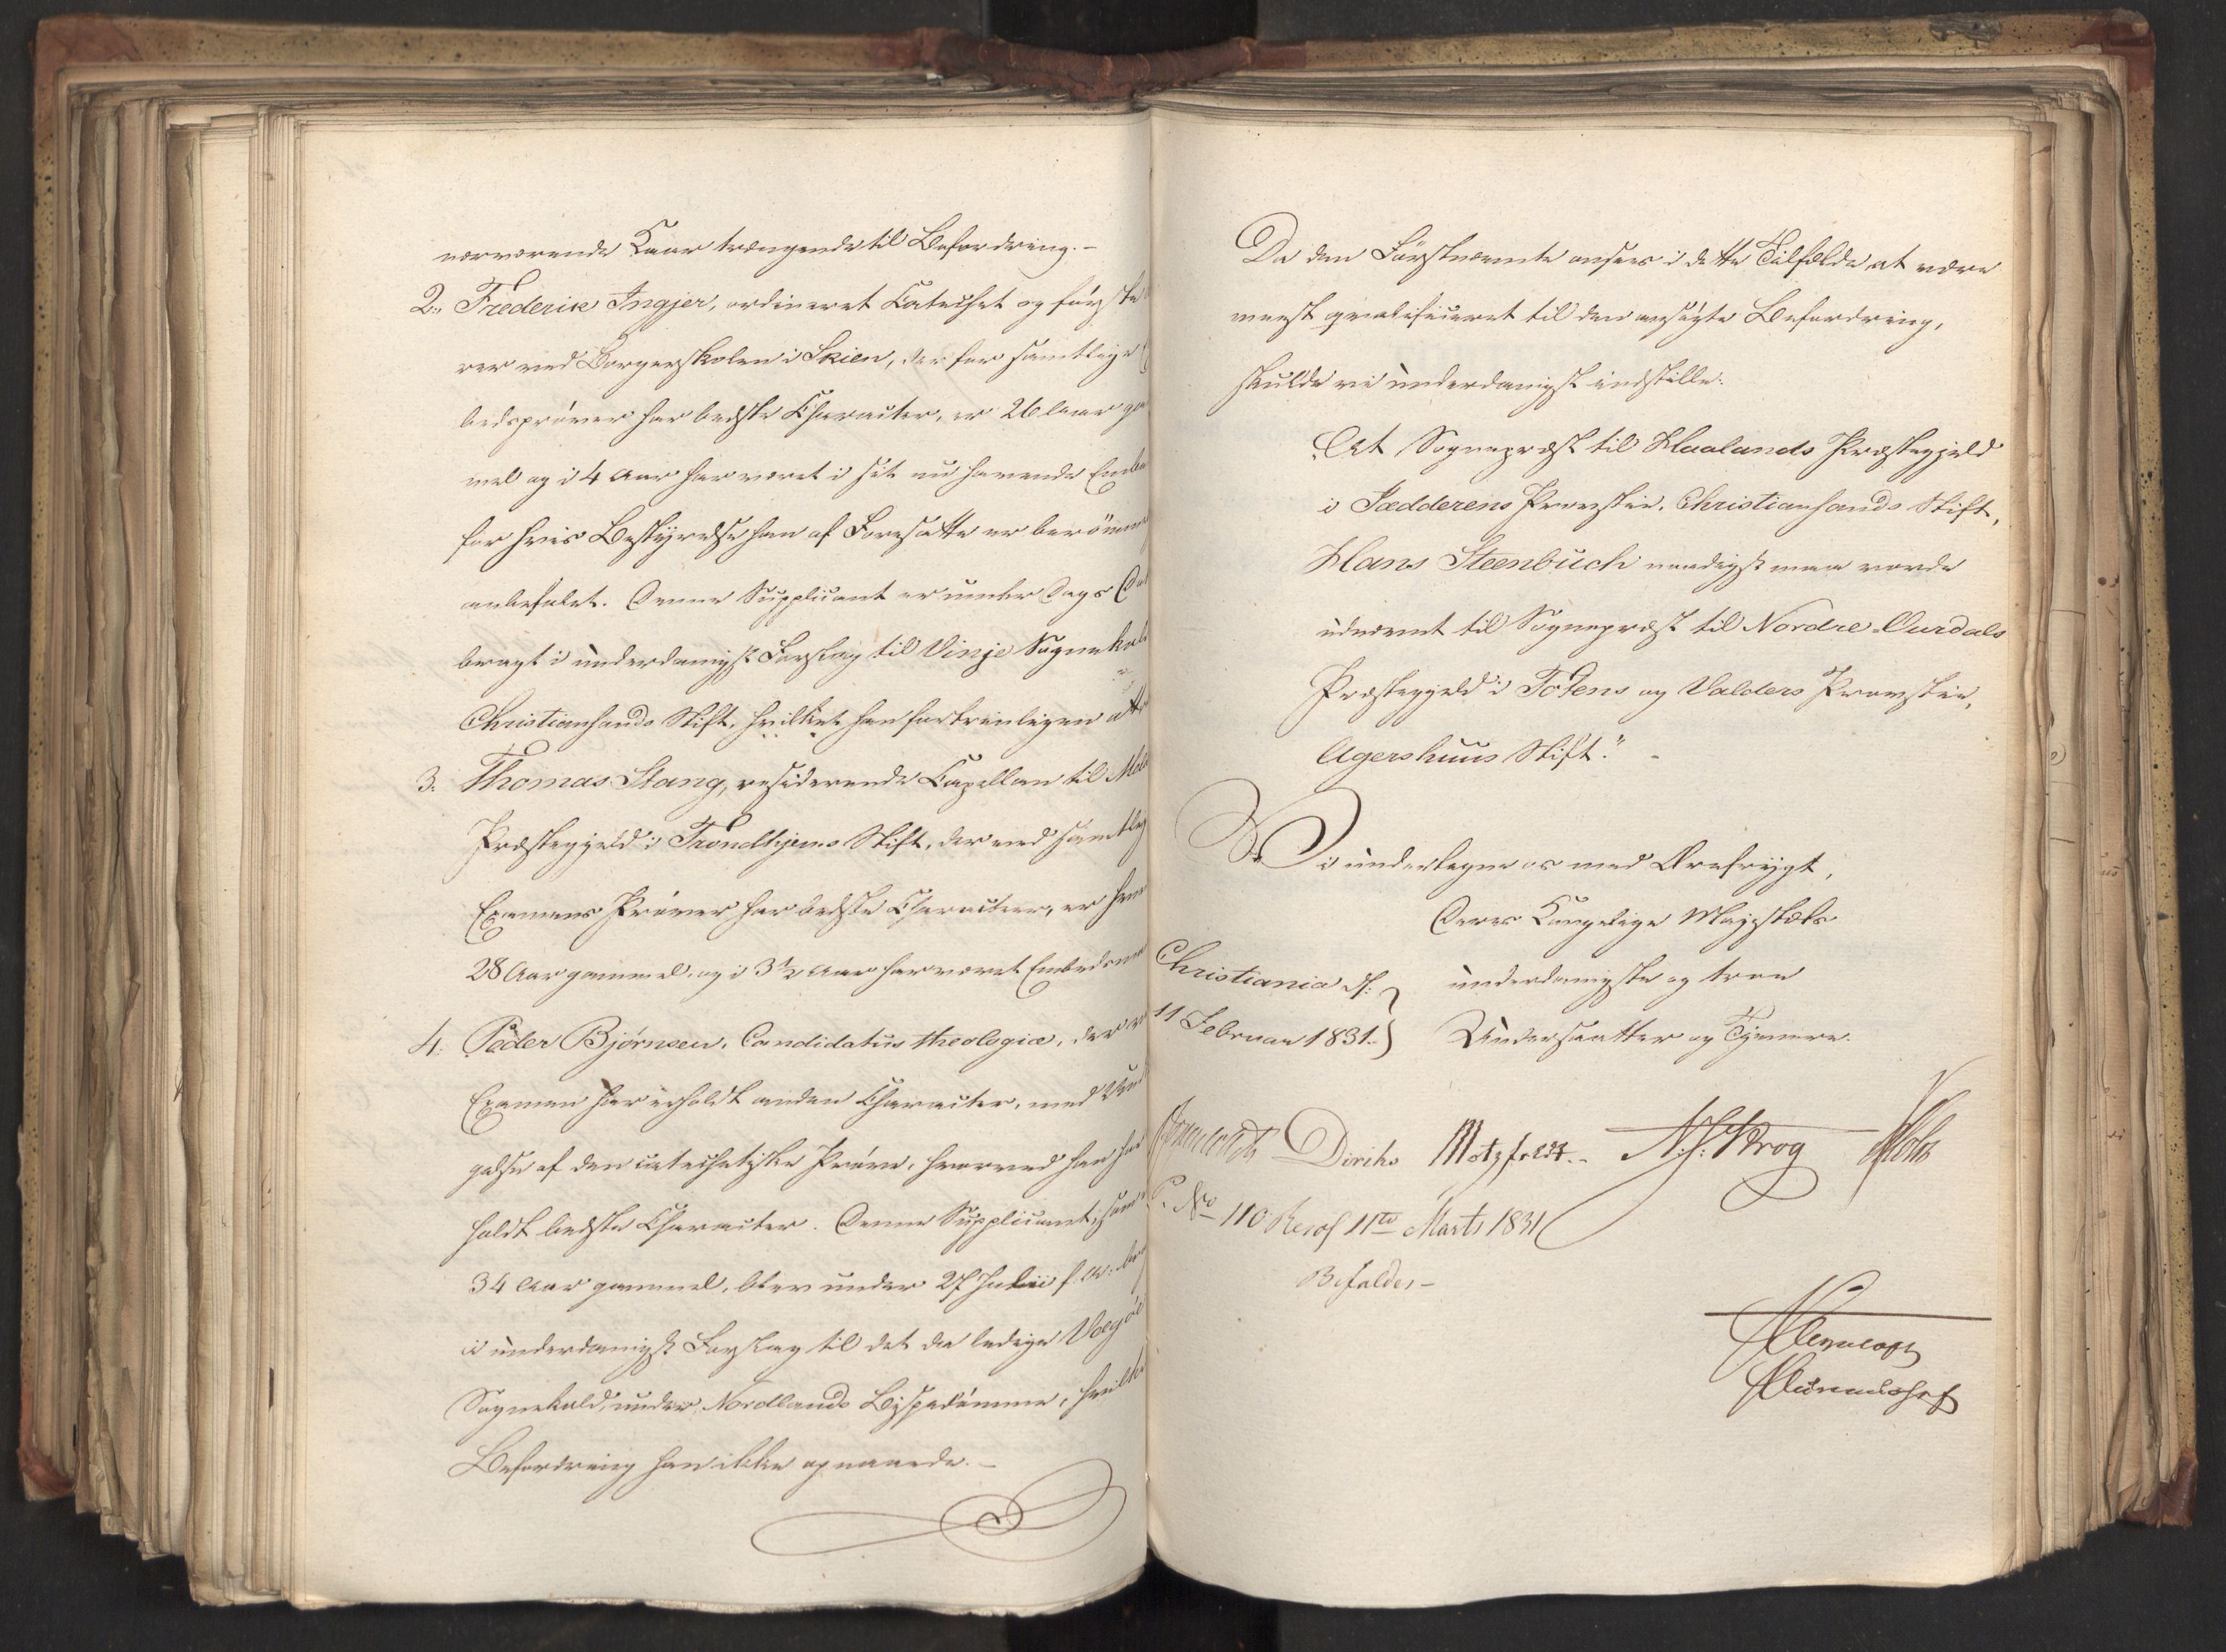 nærværende Kaar trængende til Befordring. -
2., Frederik Ingjer, ordineret Catechet og første
rer ved Borgerskolen i Skien, der for samtlige
bedsprøver har bedste Character, er 26 Aar ga
mel og i 4 Aar har været i sit nu havende Embe
for hvis Bestyrelse han af Foresatte er berømme
anbefalet. Denne Supplicant er under Dags Da
bragt i underdanigst Forslag til Vinje Sognekald
Christiansands Stift, hvilket han fortrinligen
3. Thomas Stang, residerende Capellan til
Præstegjeld i Trondhjems Stift, der ved samtlig
Examens Prøver har bedste Character, er
28 Aar gammel, og i 3½ Aar har været Embedsma
4. Peder Bjørnsen, Candidatus theologiæ, der
Examen har erholdt anden Character, med Und
gelse af den catechetiske Prøve, hvorved han har
holdt bedste Character. Denne Supplicant, som
34 Aar gammel, blev under 27 Julii f. A.
i underdanigst Forslag til det da ledige Vegøe
Sognekald, under Nordlands Bispedømme, hvilke
Befordring han ikke opnaaede. -
Da den Førstnævnte ansees i dette Tilfælde at være
meest qvalificeret til den ansøgte Befordring,
skulde vi underdanigst indstille:
"At Sognepræst til Haalands Præstegjeld
i Jædderens Provstie, Christiansands Stift,
Hans Steenbuch naadigst maa vorde
udnævnt til Sognepræst til Nordre-Ourdals
Præstegjeld i Totens og Valders Provstie,
Agershuus Stift." -
Vi undertegne os med Ærefrygt,
Deres Kongelige Majestæts
Christiania d: underdanigste og troe
11 Februar 1831. Undersaatter og Tjenere.
Diriks Motzfeldt. N. J. Krog
No 110 Resol 11te Marts 1831
Bifaldes -